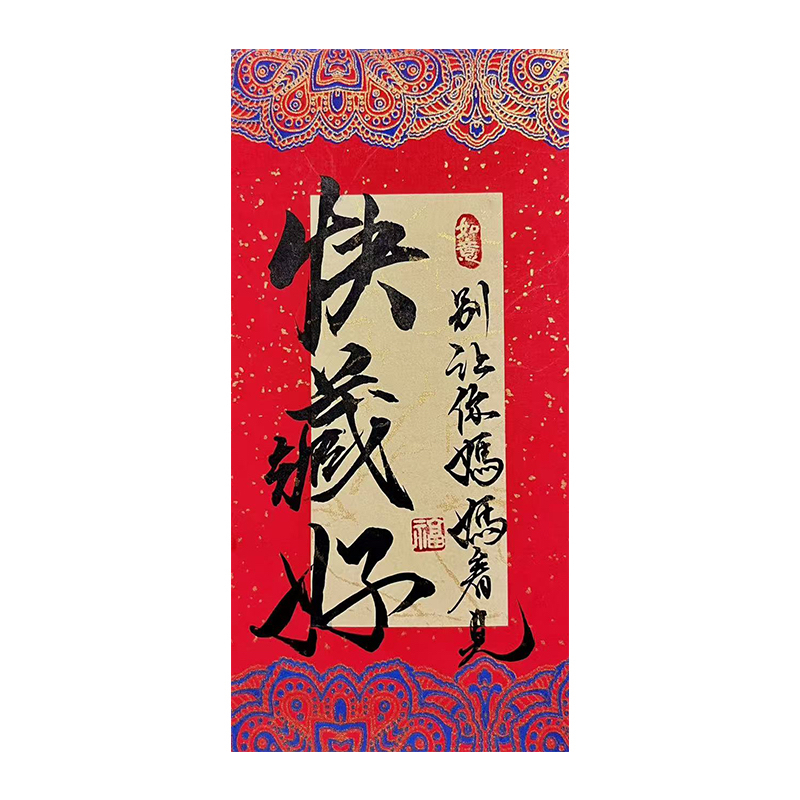 如意
别让你媽媽看見
快藏好
福